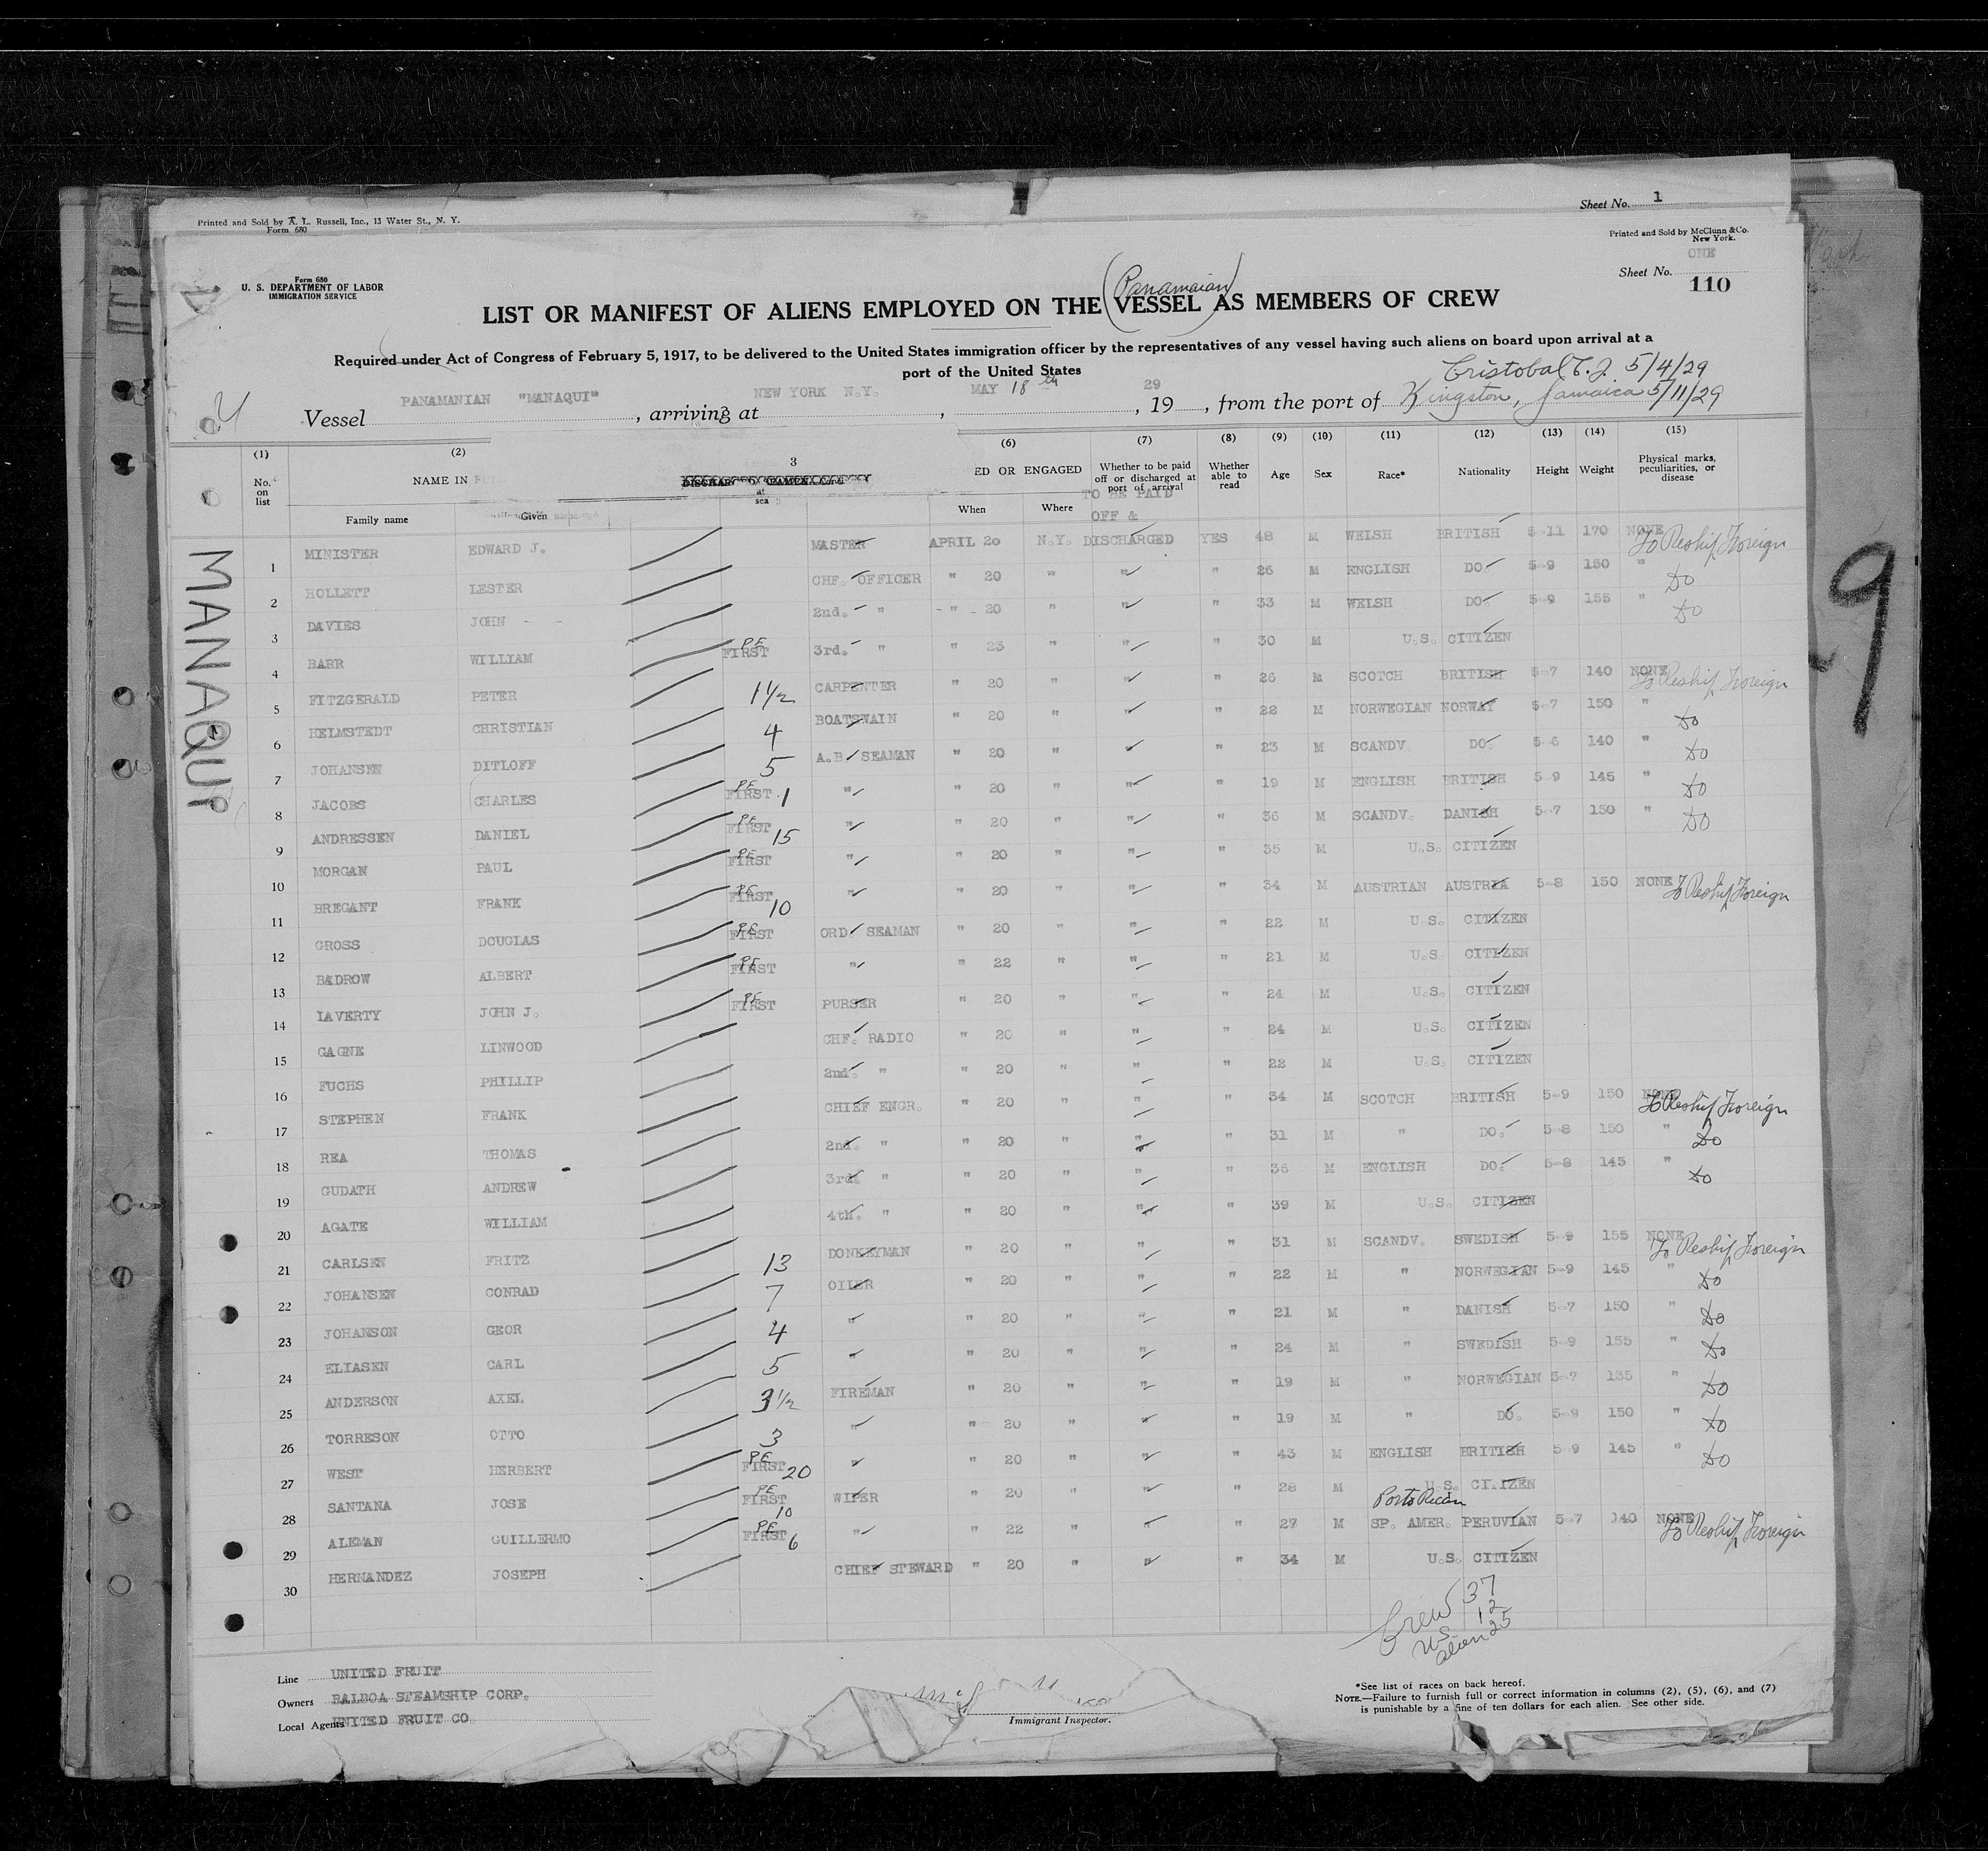 Printed and Sold by A. L. Russell, Inc., 13 Water St., N. Y.
Form 680
Sheet No. 1
Printed and Sold by McClunn & Co.
New York.
ONE
Sheet No.
110
Form 680
U. S. DEPARTMENT OF LABOR
IMMIGRATION SERVICE
(Panamaian)
LIST OR MANIFEST OF ALIENS EMPLOYED ON THE VESSEL AS MEMBERS OF CREW
Required under Act of Congress of February 5, 1917, to be delivered to the United States immigration officer by the representatives of any vessel having such aliens on board upon arrival at a
port of the United States
Cristobal C.Z. 5/4/29
Vessel PANAMANIAN "MANAQUI", arriving at NEW YORK N.Y., MAY 18th, 1929, from the port of Kingston, Jamaica 5/11/29
(1) (2) 3 (6) (7) (8) (9) (10) (11) (12) (13) (14) (15)
No. on list NAME IN at sea ED OR ENGAGED Whether to be paid off or discharged at port of arrival Whether able to read Age Sex Race* Nationality Height Weight Physical marks, peculiarities, or disease
Family name Given When Where TO BE PAID OFF &
MANAQUI
9
1 MINISTER EDWARD J. MASTER APRIL 20 N.Y. DISCHARGED YES 48 M WELSH BRITISH 5-11 170 NONE To Reship Foreign
2 HOLLETT LESTER CHF. OFFICER " 20 " " " 26 M ENGLISH DO. 5-9 150 " Do
3 DAVIES JOHN - - 2nd. " - " - 20 " " " 33 M WELSH DO. 5-9 155 " Do
4 BARR WILLIAM PE FIRST 3rd. " " 23 " " " 30 M U.S. CITIZEN
5 FITZGERALD PETER 1 1/2 CARPENTER " 20 " " " 26 M SCOTCH BRITISH 5-7 140 NONE To Reship Foreign
6 HELMSTEDT CHRISTIAN 4 BOATSWAIN " 20 " " " 22 M NORWEGIAN NORWAY 5-7 150 " Do
7 JOHANSEN DITLOFF 5 A.B. SEAMAN " 20 " " " 23 M SCANDV. DO. 5-6 140 " Do
8 JACOBS CHARLES PE FIRST 1 " " 20 " " " 19 M ENGLISH BRITISH 5-9 145 " Do
9 ANDRESSEN DANIEL PE FIRST 15 " " 20 " " " 36 M SCANDV. DANISH 5-7 150 " Do
10 MORGAN PAUL PE FIRST " " 20 " " " 35 M U.S. CITIZEN
11 BREGANT FRANK PE FIRST 10 " " 20 " " " 34 M AUSTRIAN AUSTRIA 5-8 150 NONE To Reship Foreign
12 GROSS DOUGLAS PE FIRST ORD. SEAMAN " 20 " " " 22 M U.S. CITIZEN
13 BADROW ALBERT PE FIRST " " 22 " " " 21 M U.S. CITIZEN
14 LAVERTY JOHN J. PE FIRST PURSER " 20 " " " 24 M U.S. CITIZEN
15 GAGNE LINWOOD CHF. RADIO " 20 " " " 24 M U.S. CITIZEN
16 FUCHS PHILLIP 2nd. " " 20 " " " 22 M U.S. CITIZEN
17 STEPHEN FRANK CHIEF ENGR. " 20 " " " 34 M SCOTCH BRITISH 5-9 150 NONE To Reship Foreign
18 REA THOMAS 2nd. " " 20 " " " 31 M " DO. 5-8 150 " Do
19 GUDATH ANDREW 3rd. " " 20 " " " 36 M ENGLISH DO. 5-8 145 " Do
20 AGATE WILLIAM 4th. " " 20 " " " 39 M U.S. CITIZEN
21 CARLSEN FRITZ 13 DONKEYMAN " 20 " " " 31 M SCANDV. SWEDISH 5-9 155 NONE To Reship Foreign
22 JOHANSEN CONRAD 7 OILER " 20 " " " 22 M " NORWEGIAN 5-9 145 " Do
23 JOHANSON GEOR 4 " " 20 " " " 21 M " DANISH 5-7 150 " Do
24 ELIASEN CARL 5 " " 20 " " " 24 M " SWEDISH 5-9 155 " Do
25 ANDERSON AXEL 3 1/2 FIREMAN " 20 " " " 19 M " NORWEGIAN 5-7 135 " Do
26 TORRESON OTTO 3 " " 20 " " " 19 M " DO. 5-9 150 " Do
27 WEST HERBERT PE FIRST 20 " " 20 " " " 43 M ENGLISH BRITISH 5-9 145 " Do
28 SANTANA JOSE PE FIRST 10 WIPER " 20 " " " 28 M Porto Rican U.S. CITIZEN
29 ALEMAN GUILLERMO PE FIRST 6 " " 22 " " " 27 M SP. AMER. PERUVIAN 5-7 140 NONE To Reship Foreign
30 HERNANDEZ JOSEPH CHIEF STEWARD " 20 " " " 34 M U.S. CITIZEN
Crew 37
U.S. 12
Alien 25
Line UNITED FRUIT
Owners BALBOA STEAMSHIP CORP.
Local Agents UNITED FRUIT CO
Immigrant Inspector.
*See list of races on back hereof.
NOTE.—Failure to furnish full or correct information in columns (2), (5), (6), and (7)
is punishable by a fine of ten dollars for each alien. See other side.